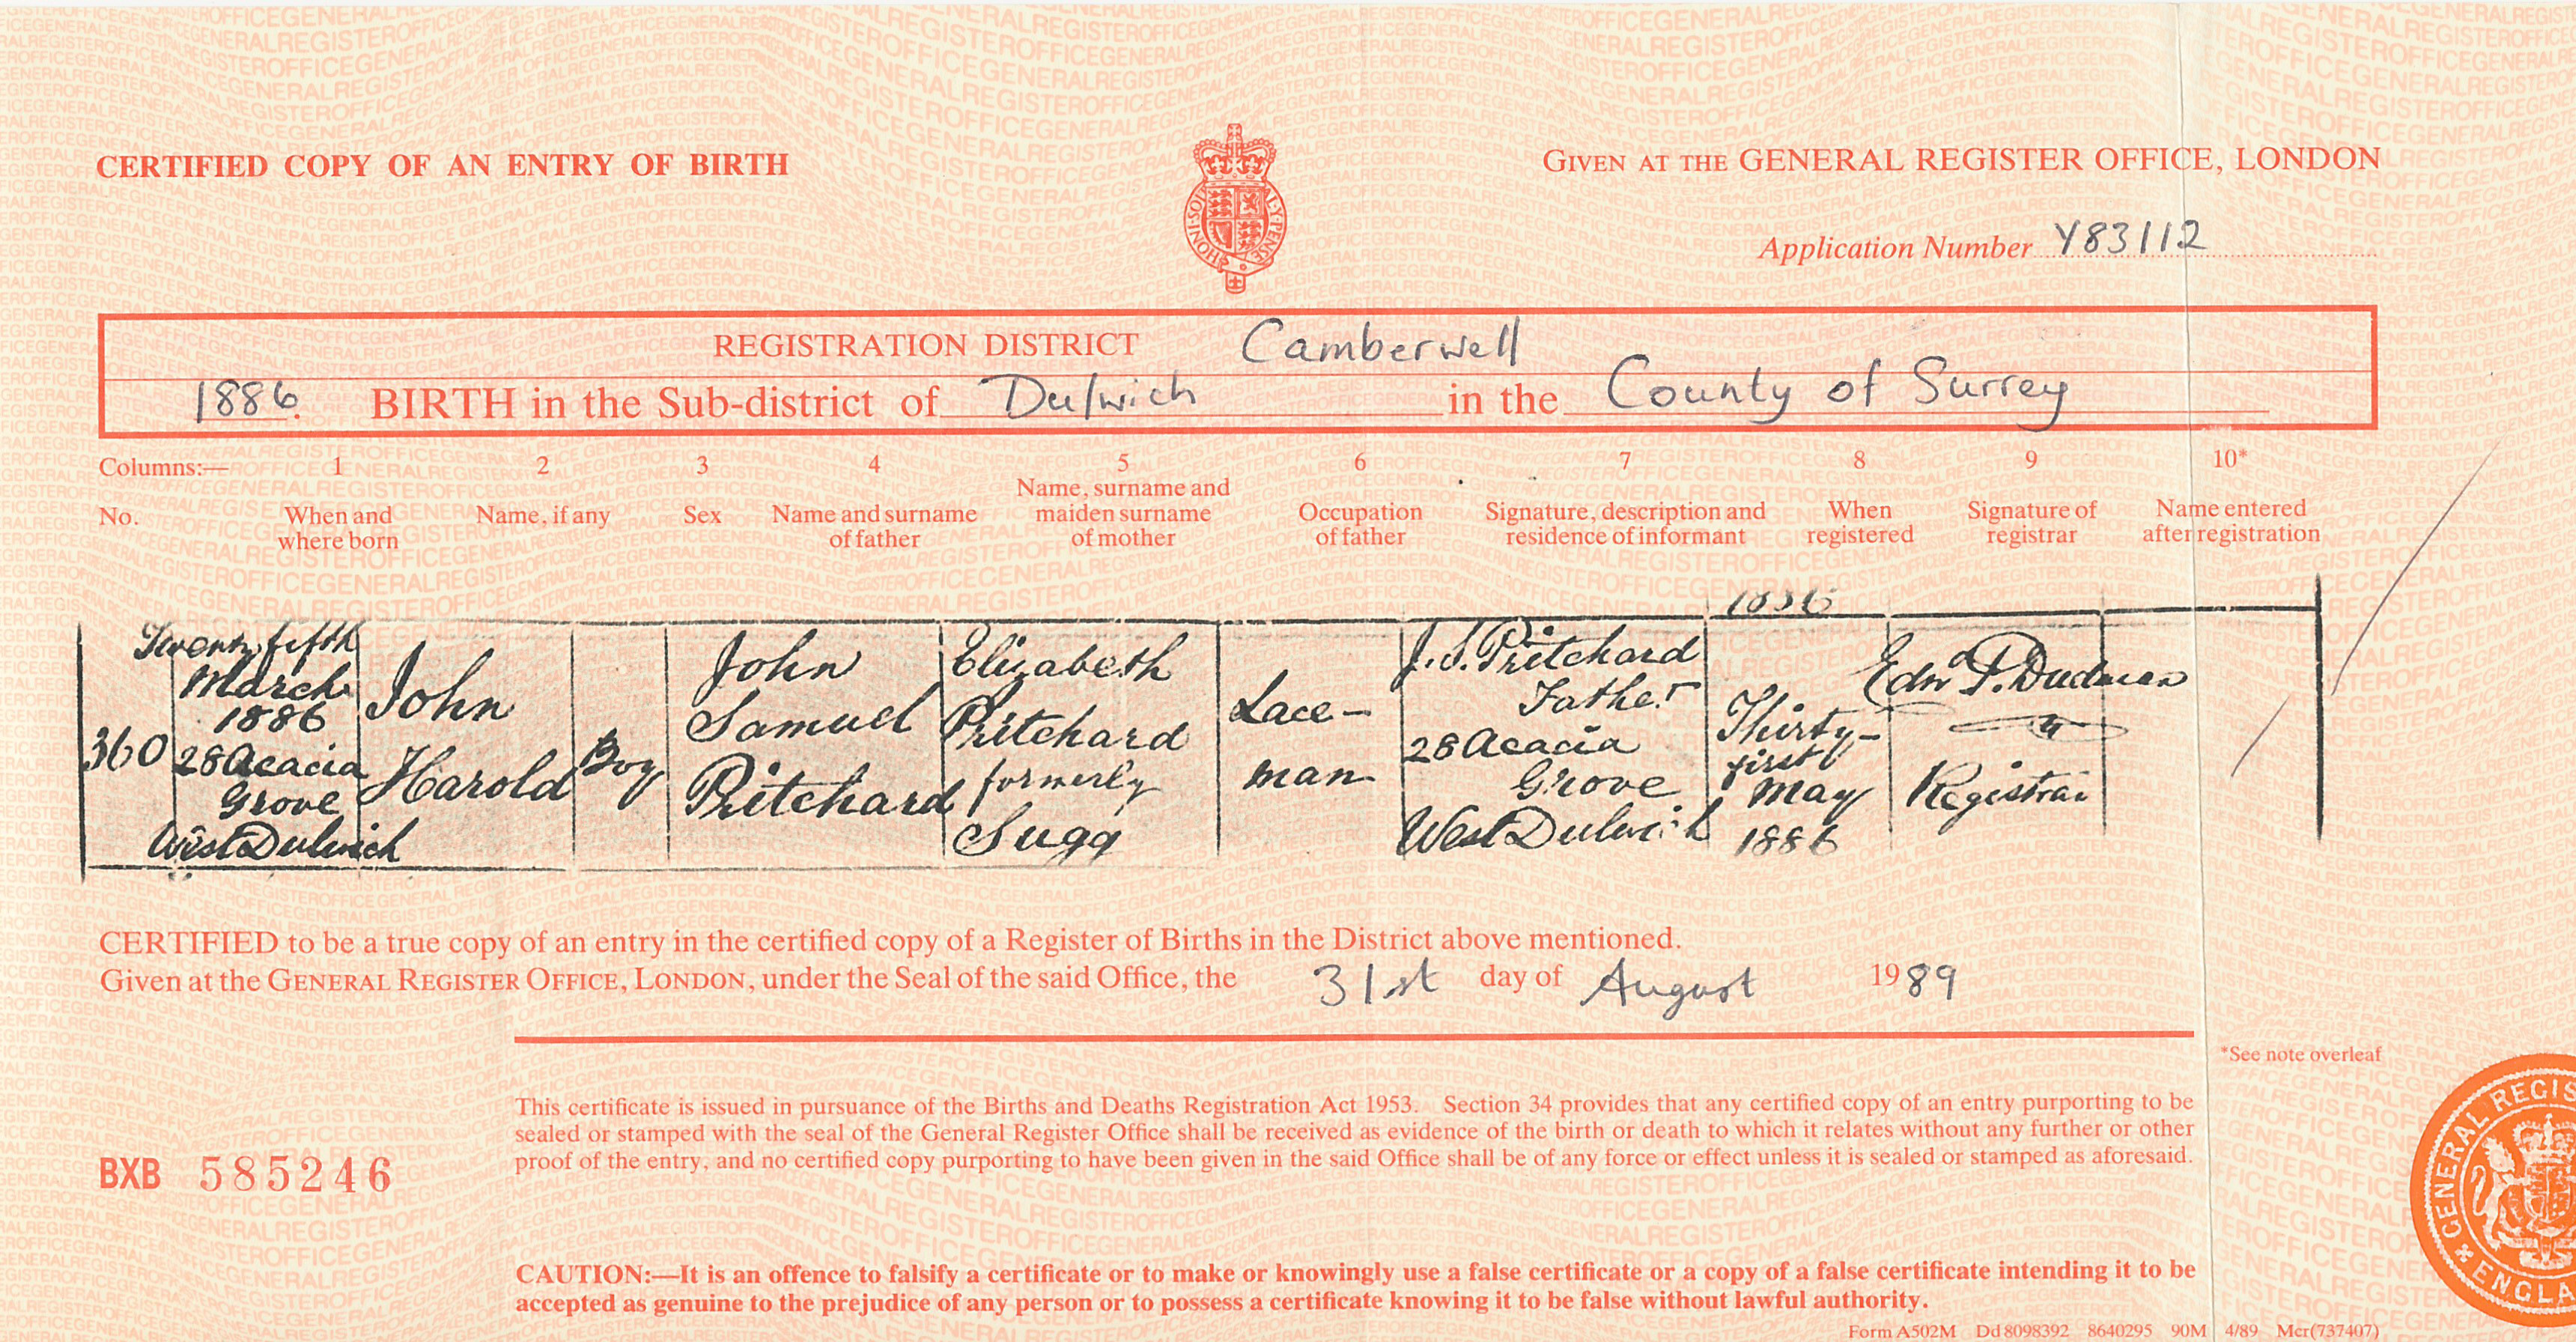 CERTIFIED COPY OF AN ENTRY OF BIRTH
GIVEN AT THE GENERAL REGISTER OFFICE, LONDON
Application Number Y83112
REGISTRATION DISTRICT Camberwell
1886. BIRTH in the Sub-district of Dulwich in the County of Surrey
Columns:— 1 2 3 4 5 6 7 8 9 10*
No.
When and
where born
Name, if any
Sex
Name and surname
of father
Name, surname and
maiden surname
of mother
Occupation
of father
Signature, description and
residence of informant
When
registered
Signature of
registrar
Name entered
after registration
360
Twenty fifth
March
1886
28 Acacia
Grove
West Dulwich
John
Harold
Boy
John
Samuel
Pritchard
Elizabeth
Pritchard
formerly
Sugg
Lace-
man
J. S. Pritchard
Father
28 Acacia
Grove
West Dulwich
Thirty-
first
May
1886
Edwd P. Dudman
Registrar
CERTIFIED to be a true copy of an entry in the certified copy of a Register of Births in the District above mentioned.
Given at the GENERAL REGISTER OFFICE, LONDON, under the Seal of the said Office, the 31st day of August 1989
*See note overleaf
This certificate is issued in pursuance of the Births and Deaths Registration Act 1953. Section 34 provides that any certified copy of an entry purporting to be
sealed or stamped with the seal of the General Register Office shall be received as evidence of the birth or death to which it relates without any further or other
proof of the entry, and no certified copy purporting to have been given in the said Office shall be of any force or effect unless it is sealed or stamped as aforesaid.
BXB 585246
CAUTION:—It is an offence to falsify a certificate or to make or knowingly use a false certificate or a copy of a false certificate intending it to be
accepted as genuine to the prejudice of any person or to possess a certificate knowing it to be false without lawful authority.
Form A502M Dd 8098392 8640295 90M 4/89 Mcr(737407)
GENERAL REGIS
ENGLA